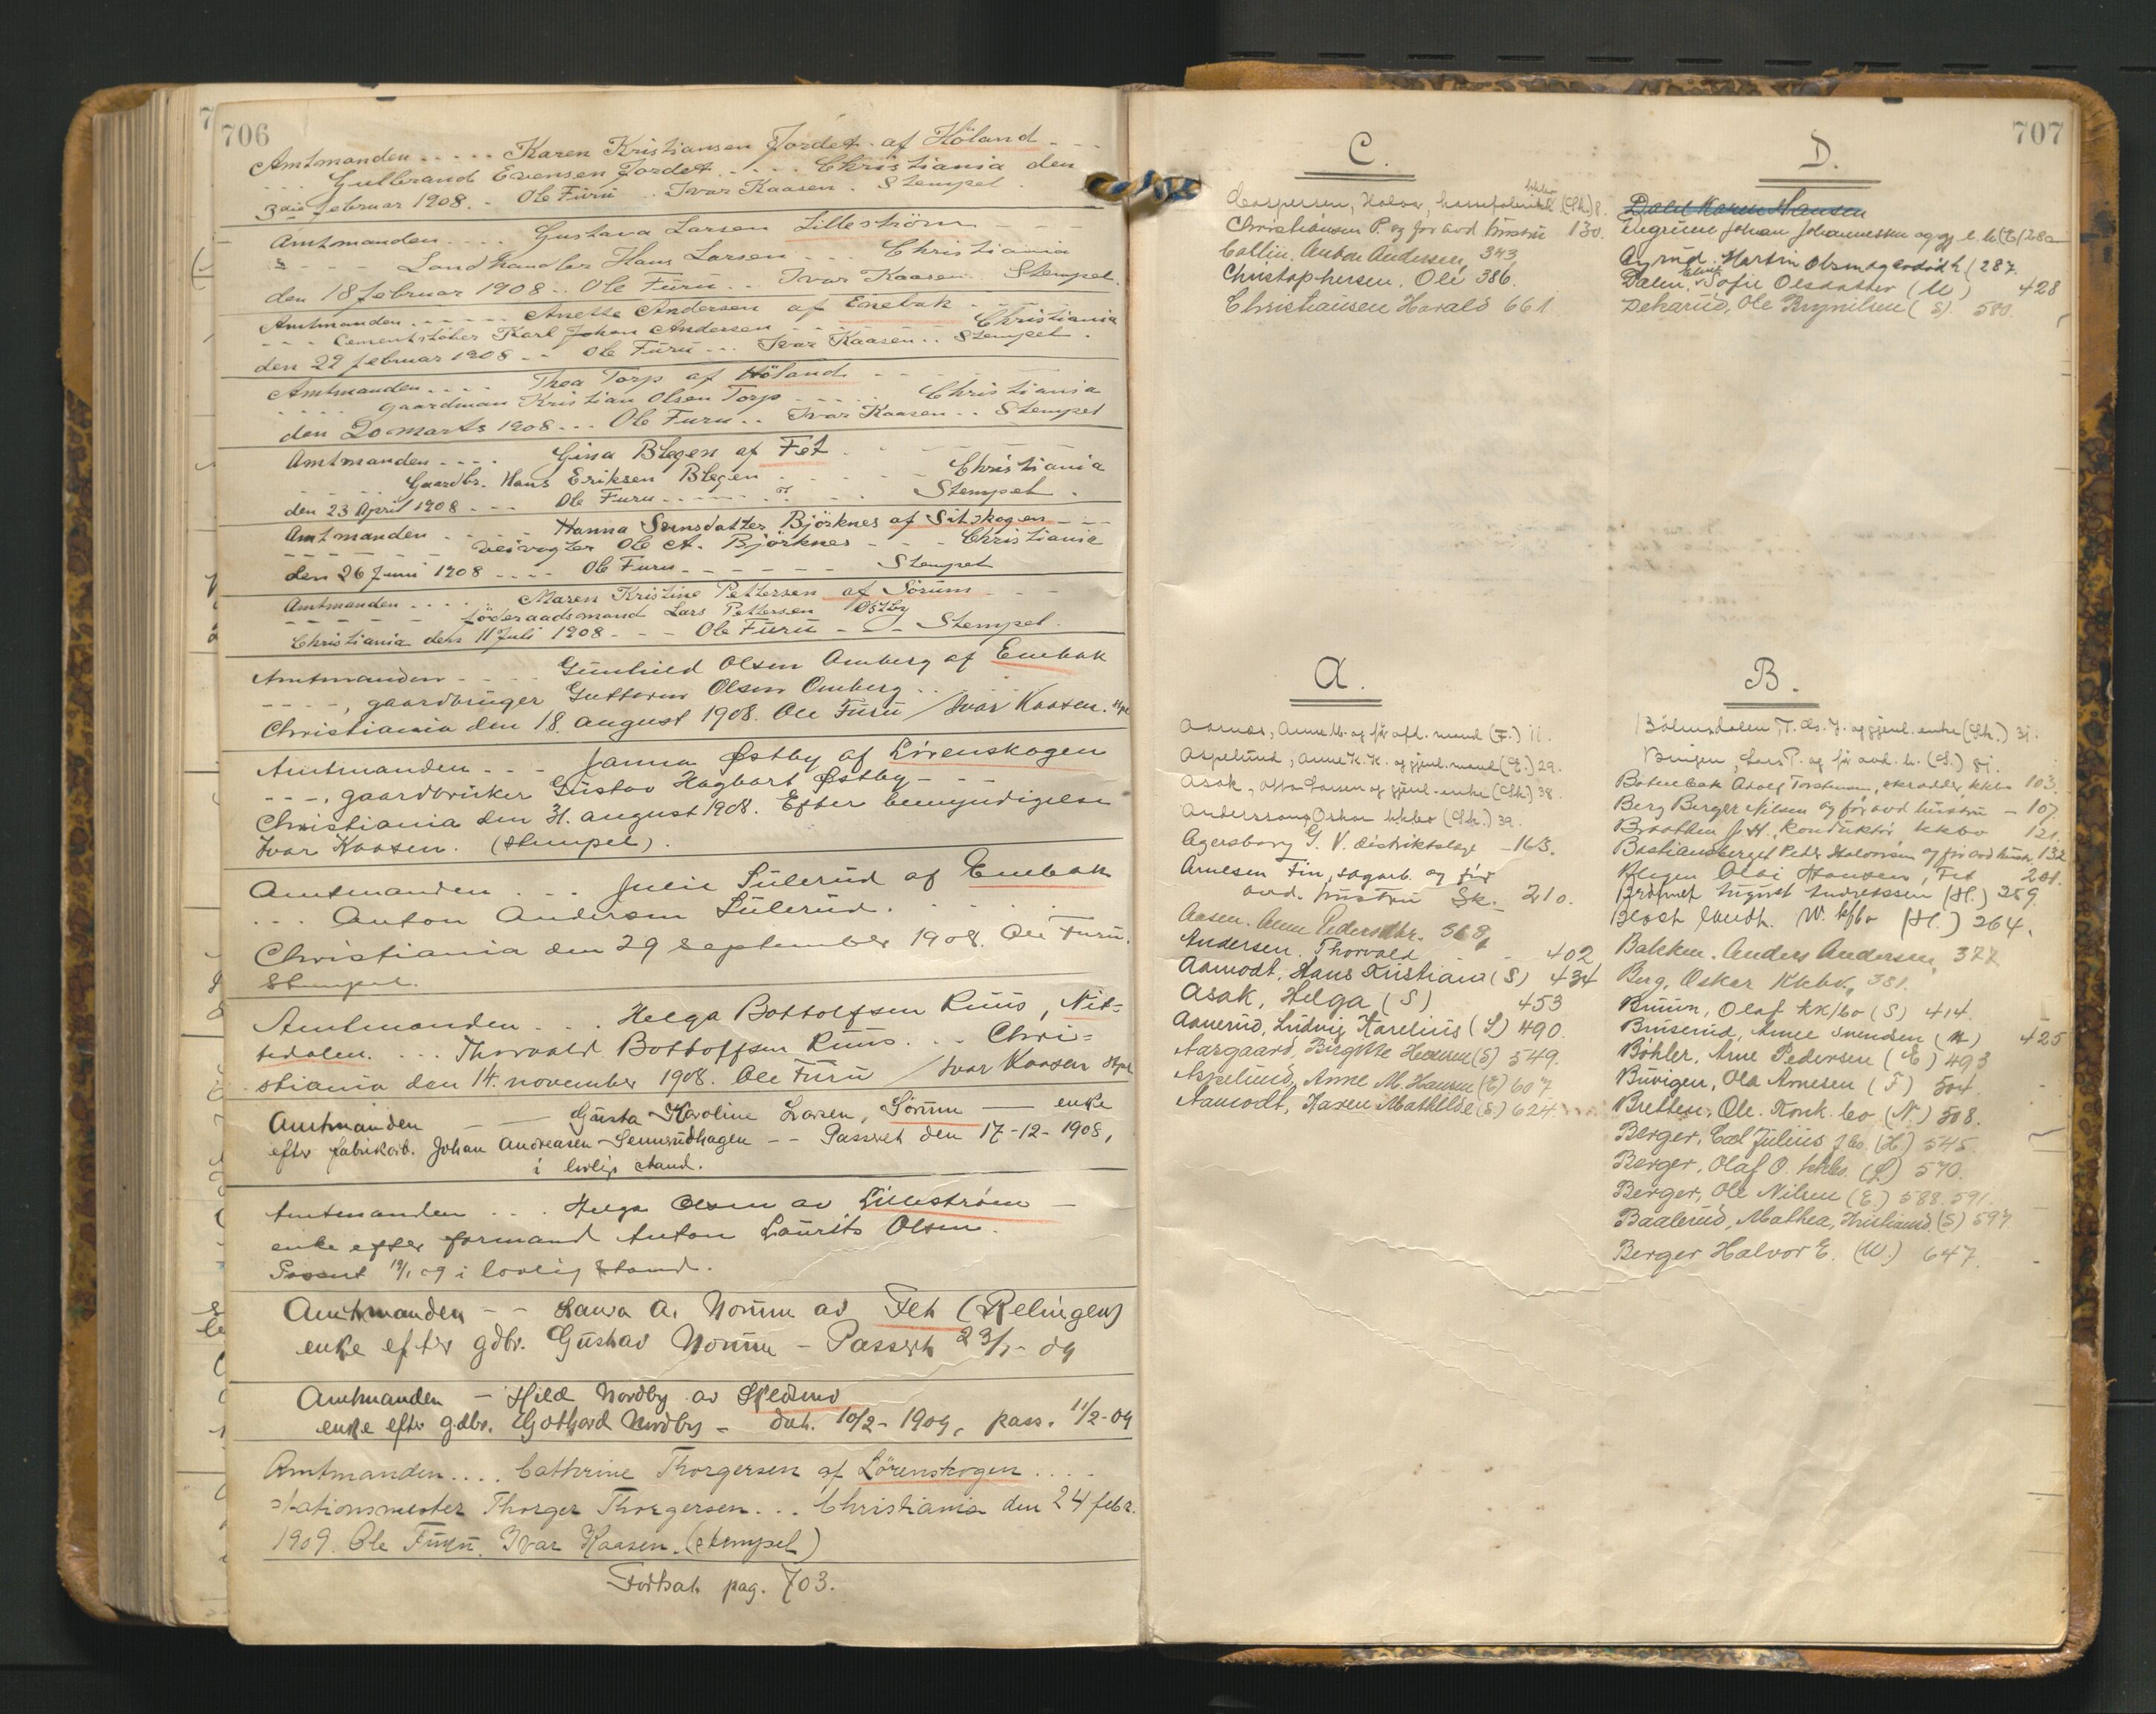 706
Amtmanden ..... Karen Kristiansen Jordet af Höland ...
... Gulbrand Evensen Jordet ..... Christiania den
3die februar 1908. - Ole Furu .. Ivar Kaasen. Stempel.
Amtmanden .... Gustava Larsen Lilleström - - -
- - - Landhandler Hans Larsen ... Christiania
den 18 februar 1908 .. Ole Furu .. Ivar Kaasen. Stempel.
Amtmanden ...... Anette Andersen af Enebak - - -
- - - Cementstöber Karl Johan Andersen ... Christiania
den 22 februar 1908 - - Ole Furu ... Ivar Kaasen .. Stempel.
Amtmanden .... Thea Torp af Höland - - -
.... gaardman Kristian Olsen Torp ..... Christiania
den 20 marts 1908 ... Ole Furu .. Ivar Kaasen .. Stempel
Amtmanden .... Gina Blegen af Fet . - - -
.... Gaardbr. Hans Eriksen Blegen .... Christiania
den 23 April 1908 - - - Ole Furu ..... Stempel.
Amtmanden - - - Hanna Svensdatter Björknes af Sitskogen - - -
- - - - - veivogter Ole A. Björknes - - - Christiania
den 26 Juni 1908 .... Ole Furu - - - - - Stempel
Amtmanden .... Maren Kristine Pettersen af Sörum - - -
- - - - - föderaadsmand Lars Pettersen Östby
Christiania den 11 Juli 1908 - - - Ole Furu - - - Stempel.
Amtmanden - - - Gunhild Olsen Omberg af Enebak
- - - -, gaardbruger Guttorm Olsen Omberg ...
Christiania den 18. august 1908. Ole Furu / Ivar Kaasen. Stpl
Amtmanden - - - Janna Østby af Lørenskogen
- - -, gaardbruker Gustav Hagbart Østby - - -
Christiania den 31. august 1908. Efter bemyndigelse
Ivar Kaasen. (stempel).
Amtmanden ... Julie Sulerud af Enebak
... Anton Andersen Sulerud. ....
Christiania den 29 september 1908. Ole Furu.
Stempel.
Amtmanden ... Helga Bottolfsen Ruus, Nit=
tedalen. ... Thorvald Bottolfsen Ruus. .. Chri=
stiania den 14. november 1908. Ole Furu / Ivar Kaasen Stpl
Amtmanden — Gusta Karoline Larsen, Sørum — enke
efter fabrikarb. Johan Andreasen Sennerudhagen - - Passert den 17-12-1908,
i lovlig stand.
Amtmanden ... Helga Olsen av Lillestrøm —
enke efter formand Anton Laurits Olsen.
Passert 19/1 09 i lovlig stand.
Amtmanden - - Laura A. Nordli av Fet (Relingen)
enke efter gdbr. Gustav - Passert 23/1- 09
Amtmanden - Hilda Nordby av Skedsmo
enke efter gdbr. Gothard Nordby - dat. 10/2- 1909, pass. 11/2-09
Amtmanden .... Cathrine Thorgersen af Lörenskogen ....
stationsmester Thorger Thorgersen ... Christiania den 24 febr.
1909. Ole Furu. Ivar Kaasen. (stempel)
Fortsat. pag. 703.
707
C.
Caspersen, Halvor, (Sk.) 8.
Christiansen P. og før avd hustru 130.
Collin. Anton Andersen, 343
Christophersen, Ole 386.
Christiansen Harald 661
D.
Dalen Karen Hansen
Johan Johannessen og gj. e. h (E) 280
Martin Olsen 287.
Dalen, Sofie Olsdatter (U) 428
Dekarud, Ole Brynilsen (S) 580.
A.
Aarnes, Anne M. og før afd. mand (F.) 11.
Aspelund, Anne K. K. og gjenl. mand (E.) 29.
Asak, Otto Larsen og gjenl. enke (Sk.) 38.
Anderssong, Oskar kkbo (Sk.) 39.
Agersborg G. V. distriktslæge - 163.
Arnesen Fin, sagarb. og før
avd. hustru Sk. 210.
Aasen. Anne Pedersdtr. 368,
Andersen. Thorvald - - 402
Aamodt, Hans Kristian (S) 434
Asak, Helga (S) 453
Aanerud, Ludvig Karelius (L) 490.
Aargaard, Birgitte Hansen (S) 549.
Aspelund, Anne M. Hansen (E) 607
Aamodt, Karen Mathilde (S) 624
B.
Böhmsdalen, T. Chr. J. og gjenl. enke (Sk.) 31.
Bingen, Lars P. og før avd. h. (S.) 81.
Botenbak Adolf Torstensen, skrædder, kkbo 103.
Berg Berger Nilsen og før avd hustru - 107.
Braathen J. H. konduktör kkbo 121.
Bastiansberget Peder Halvorsen og før avd hustr. 132
Blegen Olai Hansen, Fet 201.
August Andreassen (H.) 259
W. kfbo (H.) 264.
Bakken. Anders Andersen, 377
Berg, Oskar Kkbo., 381.
Bruun, Olaf kk/bo (S) 414.
Bruserud, Anne Svendsen (U) 425
Böhler, Arne Pedersen (E) 493
Buvigen, Ola Arnesen (F) 504.
Bretten, Ole. Konk. bo (N.) 508.
Berger, Carl Julius f.bo. (H) 545.
Berger, Olaf O. kkbo. (L) 570.
Berger, Ole Nilsen (E) 588. 591.
Baalerud, Mathea, Kristiansd (S) 597.
Berger Halvor E. (U.) 647.